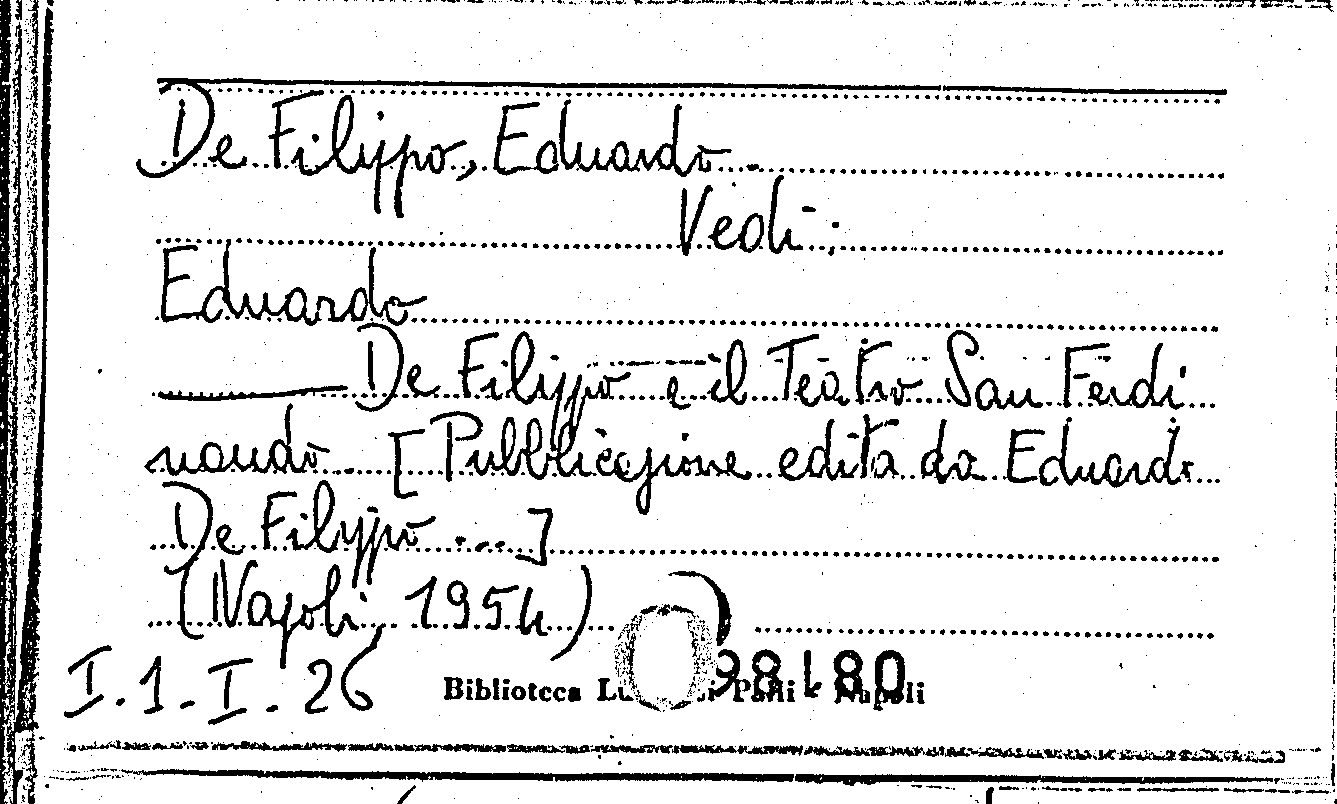 De Filippo, Eduardo.
Vedi:
Eduardo
De Filippo e il Teatro San Ferdi
nando. [Pubblicazione edita da Eduardo
De Filippo ...]
(Napoli, 1954)
I.1.I.26
98180
Biblioteca - Napoli